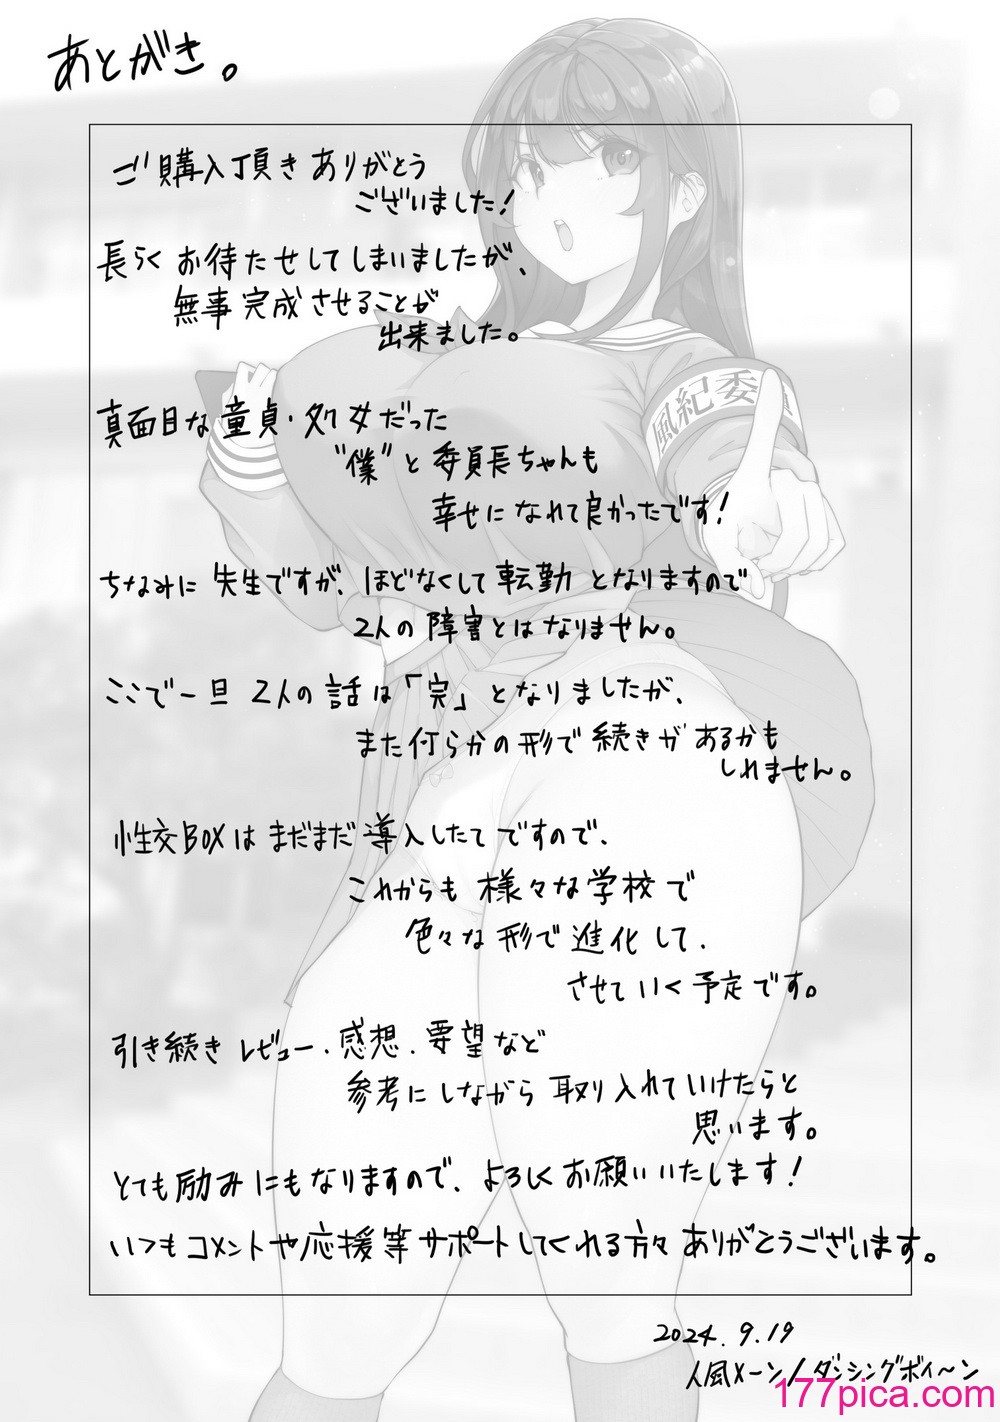 あとがき。
ご購入頂きありがとう
ございました!
長らくお待たせしてしまいましたが、
無事完成させることが
出来ました。
風紀委員
真面目な童貞・処女だった
"僕"と委員長ちゃんも
幸せになれて良かったです!
ちなみに先生ですが、ほどなくして転勤となりますので
2人の障害とはなりません。
ここで一旦2人の話は「完」となりましたが、
また何らかの形で続きがあるかも
しれません。
性交BOXはまだまだ導入したてですので、
これからも様々な学校で
色々な形で進化して、
させていく予定です。
引き続きレビュー、感想、要望など
参考にしながら取り入れていけたらと
思います。
とても励みにもなりますので、よろしくお願いいたします!
いつもコメントや応援等サポートしてくれる方々ありがとうございます。
2024.9.19
人風メーン/ダンシングボイ~ン
177pica.com